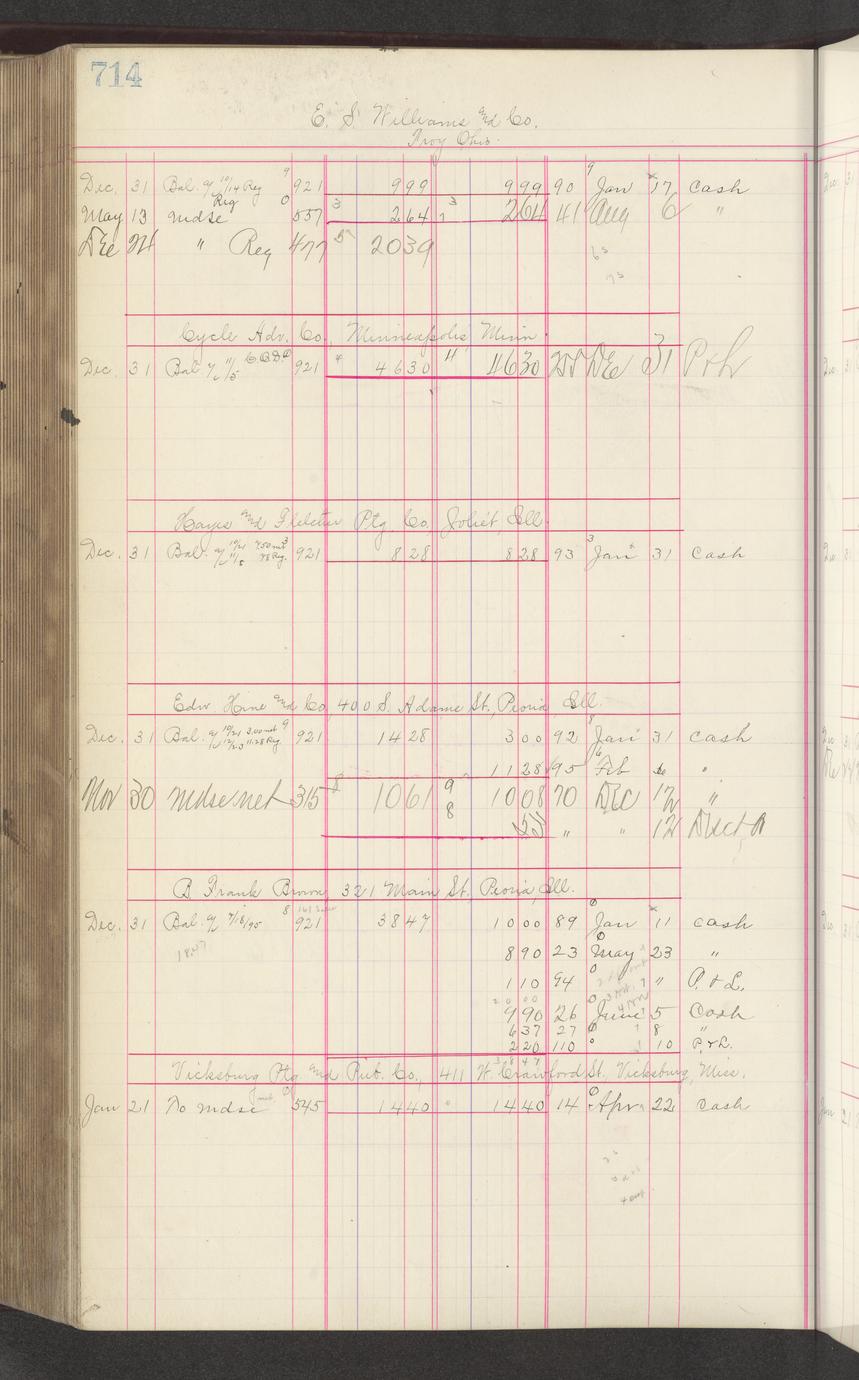 714
E. S. Williams and Co.
Troy Ohio.
Dec. 31 Bal. of 10/14 Reg 9 921 999 999 90 9 Jan 17 Cash
May 13 Mdse Reg 0 557 3 264 3 264 41 Aug 6 "
Dec 24 " Reg 477 2039
Cycle Adv. Co., Minneapolis Minn.
Dec. 31 Bal. of 11/5 C.O.D. 921 4 4630 4 4630 Dec 31 P & L
Hayes and Fletcher Ptg Co, Joliet, Ill.
Dec. 31 Bal. of 10/21 7.50 net 11/5 78 Reg. 3 921 828 828 93 3 Jan 31 Cash
Edw. Hine and Co, 400 S. Adams St., Peoria Ill.
Dec. 31 Bal. of 10/21 3.00 net 12/23 11.28 Reg 9 921 1428 300 92 8 Jan 31 Cash
1128 95 6 Feb "
Nov 30 Mdse net 315 8 1061 9 1008 70 Dec 12 "
8 53 " " 12 Disct
B. Frank Brown, 321 Main St., Peoria, Ill.
Dec. 31 Bal. of 7/18/95 8 921 3847 1000 89 0 Jan 11 Cash
1847 890 23 0 May 23 "
110 94 0 " P. & L.
2000
990 26 0 June 5 Cash
637 27 0 8 "
220 110 0 10 P. & L.
3847
Vicksburg Ptg and Pub. Co., 411 W. Crawford St. Vicksburg, Miss.
Jan 21 To Mdse 0 545 1440 0 1440 14 0 Apr 22 Cash